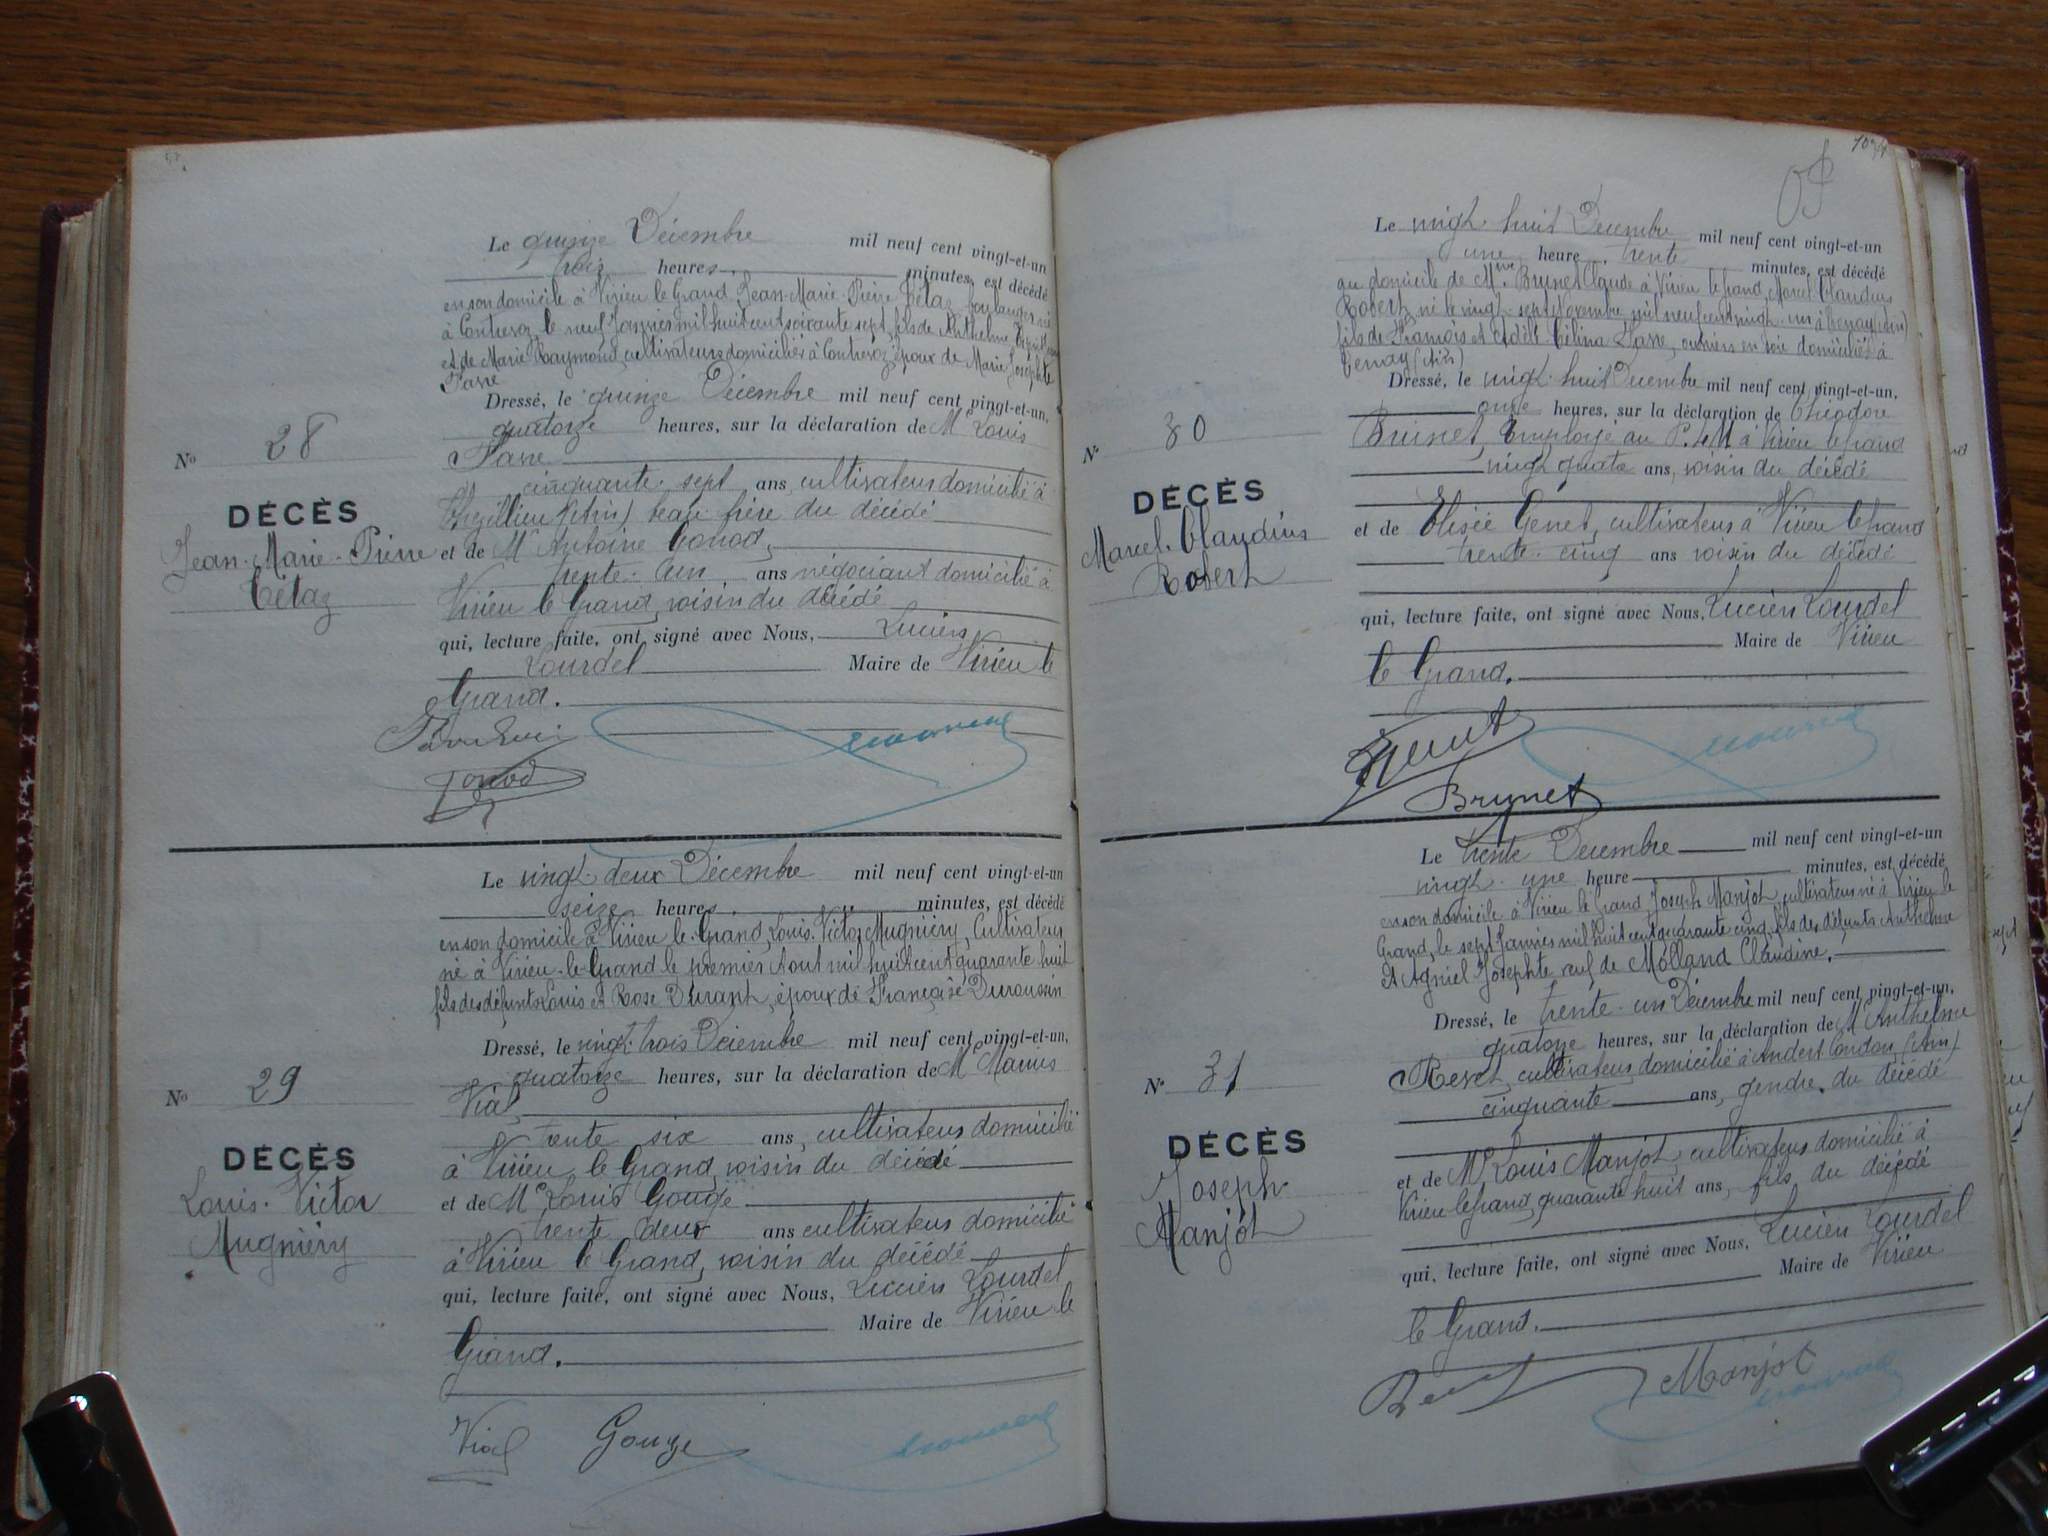 Le quinze Décembre mil neuf cent vingt-et-un
trois heures, minutes, est décédé
en son domicile à Virieu le Grand Jean-Marie-Pierre Tétaz boulanger né
à Contrevoz le neuf Janvier mil huit cent soixante sept, fils de Anthelme
et de Marie Raymond, cultivateurs domiciliés à Contrevoz, époux de Marie Josephte
Favre
Dressé, le quinze Décembre mil neuf cent vingt-et-un,
quatorze heures, sur la déclaration de Mr Louis
Favre
cinquante-sept ans, cultivateur domicilié à
(Ain) beau-frère du décédé
et de Mr Antoine Gonod,
trente-un ans négociant domicilié à
Virieu le Grand, voisin du décédé
qui, lecture faite, ont signé avec Nous, Lucien
Lourdel Maire de Virieu le
Grand.
Gonod
No 28
DÉCÈS
Jean-Marie-Pierre
Tétaz
Le vingt-deux Décembre mil neuf cent vingt-et-un
seize heures, minutes, est décédé
en son domicile à Virieu-le-Grand, Louis-Victor Mugniéry, Cultivateur
né à Virieu-le-Grand le premier Aout mil huit cent quarante huit
fils des défunts Louis et Rose Durand, époux de Françoise Duroussin
Dressé, le vingt-trois Décembre mil neuf cent vingt-et-un,
quatorze heures, sur la déclaration de Mr Marius
Vial,
trente six ans, cultivateur domicilié
à Virieu le Grand, voisin du décédé
et de Mr Louis Gouge
trente deux ans cultivateur domicilié
à Virieu le Grand, voisin du décédé
qui, lecture faite, ont signé avec Nous, Lucien Lourdel
Maire de Virieu le
Grand.
Vial Gouge
No 29
DÉCÈS
Louis-Victor
Mugniéry
Le vingt-huit Décembre mil neuf cent vingt-et-un
une heure, trente minutes, est décédé
au domicile de Mme Brunet Claude à Virieu le Grand, Marcel Claudius
Robert né le vingt-sept Novembre mil neuf cent vingt-un à Tenay (Ain)
fils de François et Adèle Célina ouvriers en soie domiciliés à
Tenay (Ain)
Dressé, le vingt-huit Décembre mil neuf cent vingt-et-un,
onze heures, sur la déclaration de Théodore
Brunet, Employé au P.L.M à Virieu le Grand
vingt quatre ans, voisin du décédé
et de Elisée Genet, cultivateur à Virieu le Grand
trente-cinq ans voisin du décédé
qui, lecture faite, ont signé avec Nous, Lucien Lourdel
Maire de Virieu
le Grand.
Genet
Brunet
No 30
DÉCÈS
Marcel-Claudius
Robert
Le trente Décembre mil neuf cent vingt-et-un
vingt-une heure minutes, est décédé
en son domicile à Virieu le Grand Joseph Manjot, cultivateur né à Virieu le
Grand, le sept Janvier mil huit cent quarante cinq, fils des défunts Anthelme
et Agniel Josephte veuf de Molland Claudine,
Dressé, le trente-un Décembre mil neuf cent vingt-et-un,
quatorze heures, sur la déclaration de Mr Anthelme
cultivateur domicilié à Andert Condon (Ain)
cinquante ans, gendre du décédé
et de Mr Louis Manjot, cultivateur domicilié à
Virieu le Grand, quarante huit ans, fils du décédé
qui, lecture faite, ont signé avec Nous, Lucien Lourdel
Maire de Virieu
le Grand.
Manjot
No 31
DÉCÈS
Joseph
Manjot